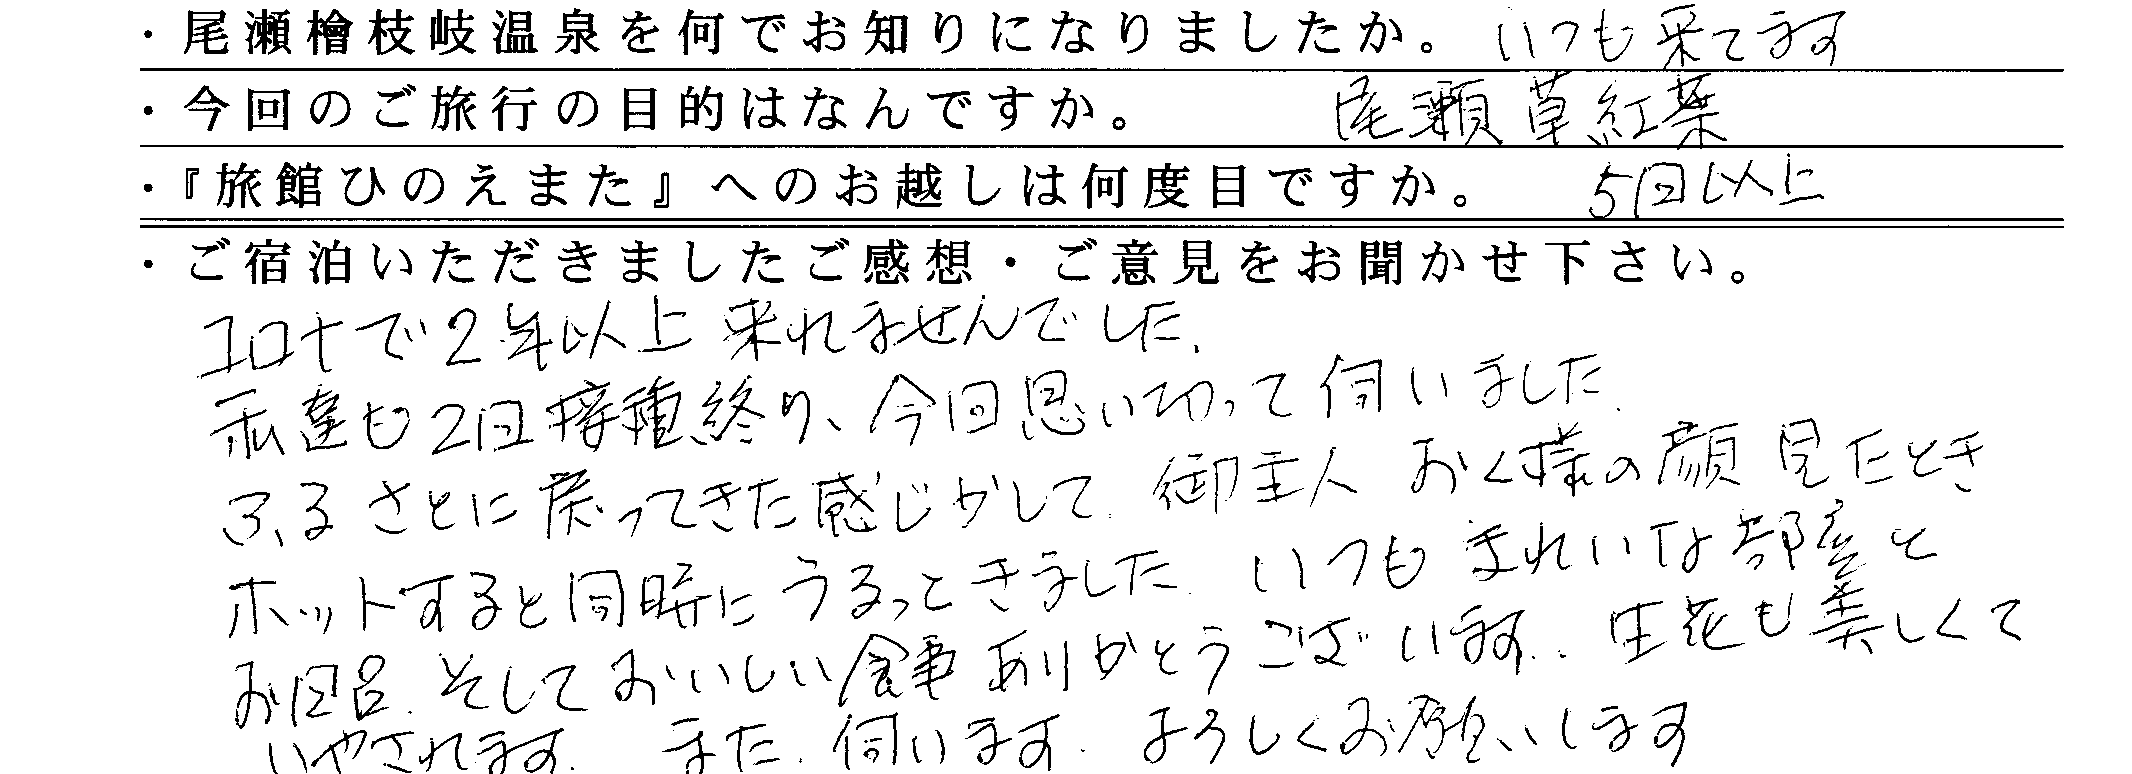 ・尾瀬檜枝岐温泉を何でお知りになりましたか。 いつも来てます
・今回のご旅行の目的はなんですか。 尾瀬草紅葉
・『旅館ひのえまた』へのお越しは何度目ですか。 5回以上
・ご宿泊いただきましたご感想・ご意見をお聞かせ下さい。
コロナで2年以上来れませんでした。
私達も2回接種終り、今回思い切って伺いました。
ふるさとに戻ってきた感じがして。御主人 おく様の顔見たとき
ホットすると同時にうるっときました。いつもきれいな部屋と
お風呂、そしておいしい食事ありがとうございます。生花も美しくて
いやされます。また、伺います。よろしくお願いします